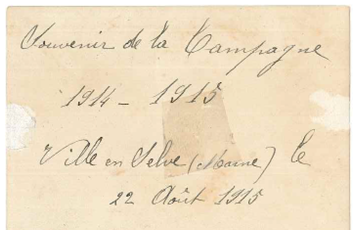 Souvenir de la Campagne
1914 - 1915
Ville en Selve (Marne) le
22 Août 1915